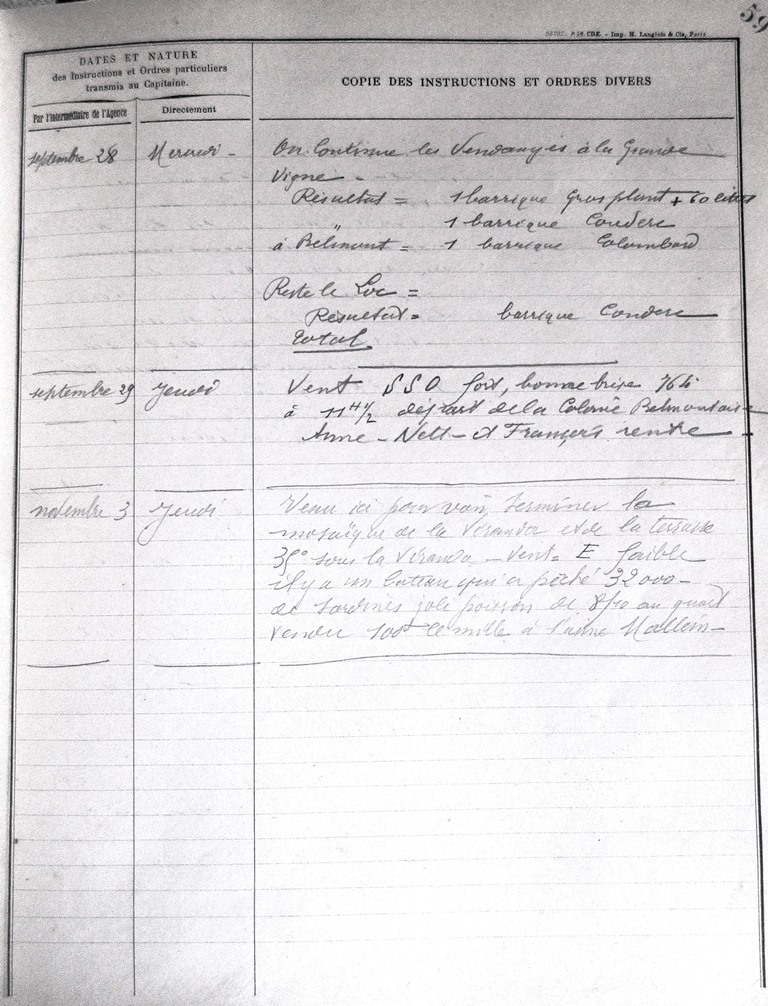 59
P 98. CDE. - Imp. H. Langlois & Cie, Paris
DATES ET NATURE
des Instructions et Ordres particuliers
transmis au Capitaine.
COPIE DES INSTRUCTIONS ET ORDRES DIVERS
Par l'Intermédiaire de l'Agence
Directement
septembre 28 Mercredi - On Continue les Vendanges à la Grande
Vigne -
Résultat = 1 barrique Gros plant + 60 litres
" 1 barrique Couderc
à Belmont = 1 barrique Colombard
Reste le Loc =
Résultat = barrique Couderc
Total
septembre 29 Jeudi Vent SSO fort, bonne brise
à 11H1/2 départ de la Colonie Belmontaise
Anne - Nell - et François rentre
novembre 3 Jeudi Venu ici pour voir terminer la
mosaïque de la Véranda et de la terrasse
35° sous la Véranda - Vent = E faible
il y a un bateau qui a pêché 32000 -
de Sardines joli poisson de 8/10 au quart
vendu le mille à l'usine